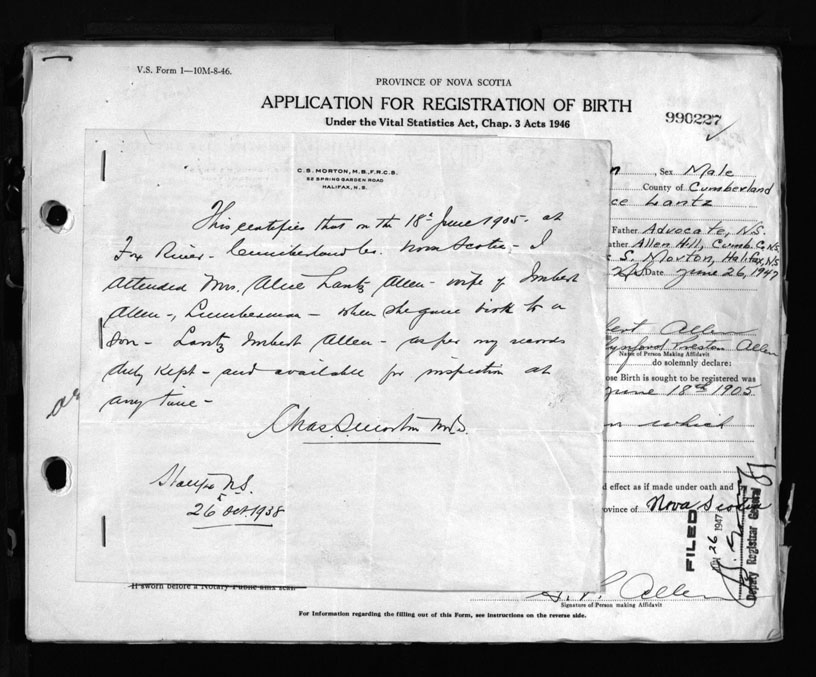 V.S. Form 1—10M-8-46.
PROVINCE OF NOVA SCOTIA
APPLICATION FOR REGISTRATION OF BIRTH
Under the Vital Statistics Act, Chap. 3 Acts 1946
990227
C. S. MORTON, M.B., F.R.C.S.
52 SPRING GARDEN ROAD
HALIFAX, N.S.
This certifies that on the 18th June 1905 - at
Fox River - Cumberland Co. Nova Scotia - I
attended Mrs. Alice Lantz Allen - wife of Imbert
Allen -, Lumberman - when she gave birth to a
Son - Lantz Imbert Allen - as per my records
duly kept - and available for inspection at
any time -
Chas. S. Morton M.D.
N.S.
26 Oct. 1938
n , Sex Male
County of Cumberland
ce Lantz
Father Advocate, N.S.
ather Allen Hill, Cumb. C. N.S.
S. Morton, Halifax, N.S.
N.S. Date June 26, 1947
bert Allen
Preston Allen
Name of Person Making Affidavit
do solemnly declare:
ose Birth is sought to be registered was
June 18th 1905
n which
d effect as if made under oath and
ovince of Nova Scotia
FILED
26 1947
Deputy Registrar General
If sworn before a Notary Public
Allen
Signature of Person making Affidavit
For Information regarding the filling out of this Form, see instructions on the reverse side.